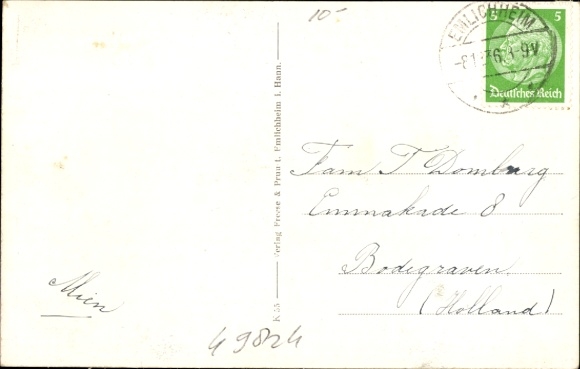 10-
EMLICHHEIM
5 5
Deutsches Reich
Verlag Freese & Prun t. Emlichheim i. Hann.
K 55
Fam T Domburg
Emmakade 8
Bodegraven.
(Holland)
Mien
49824